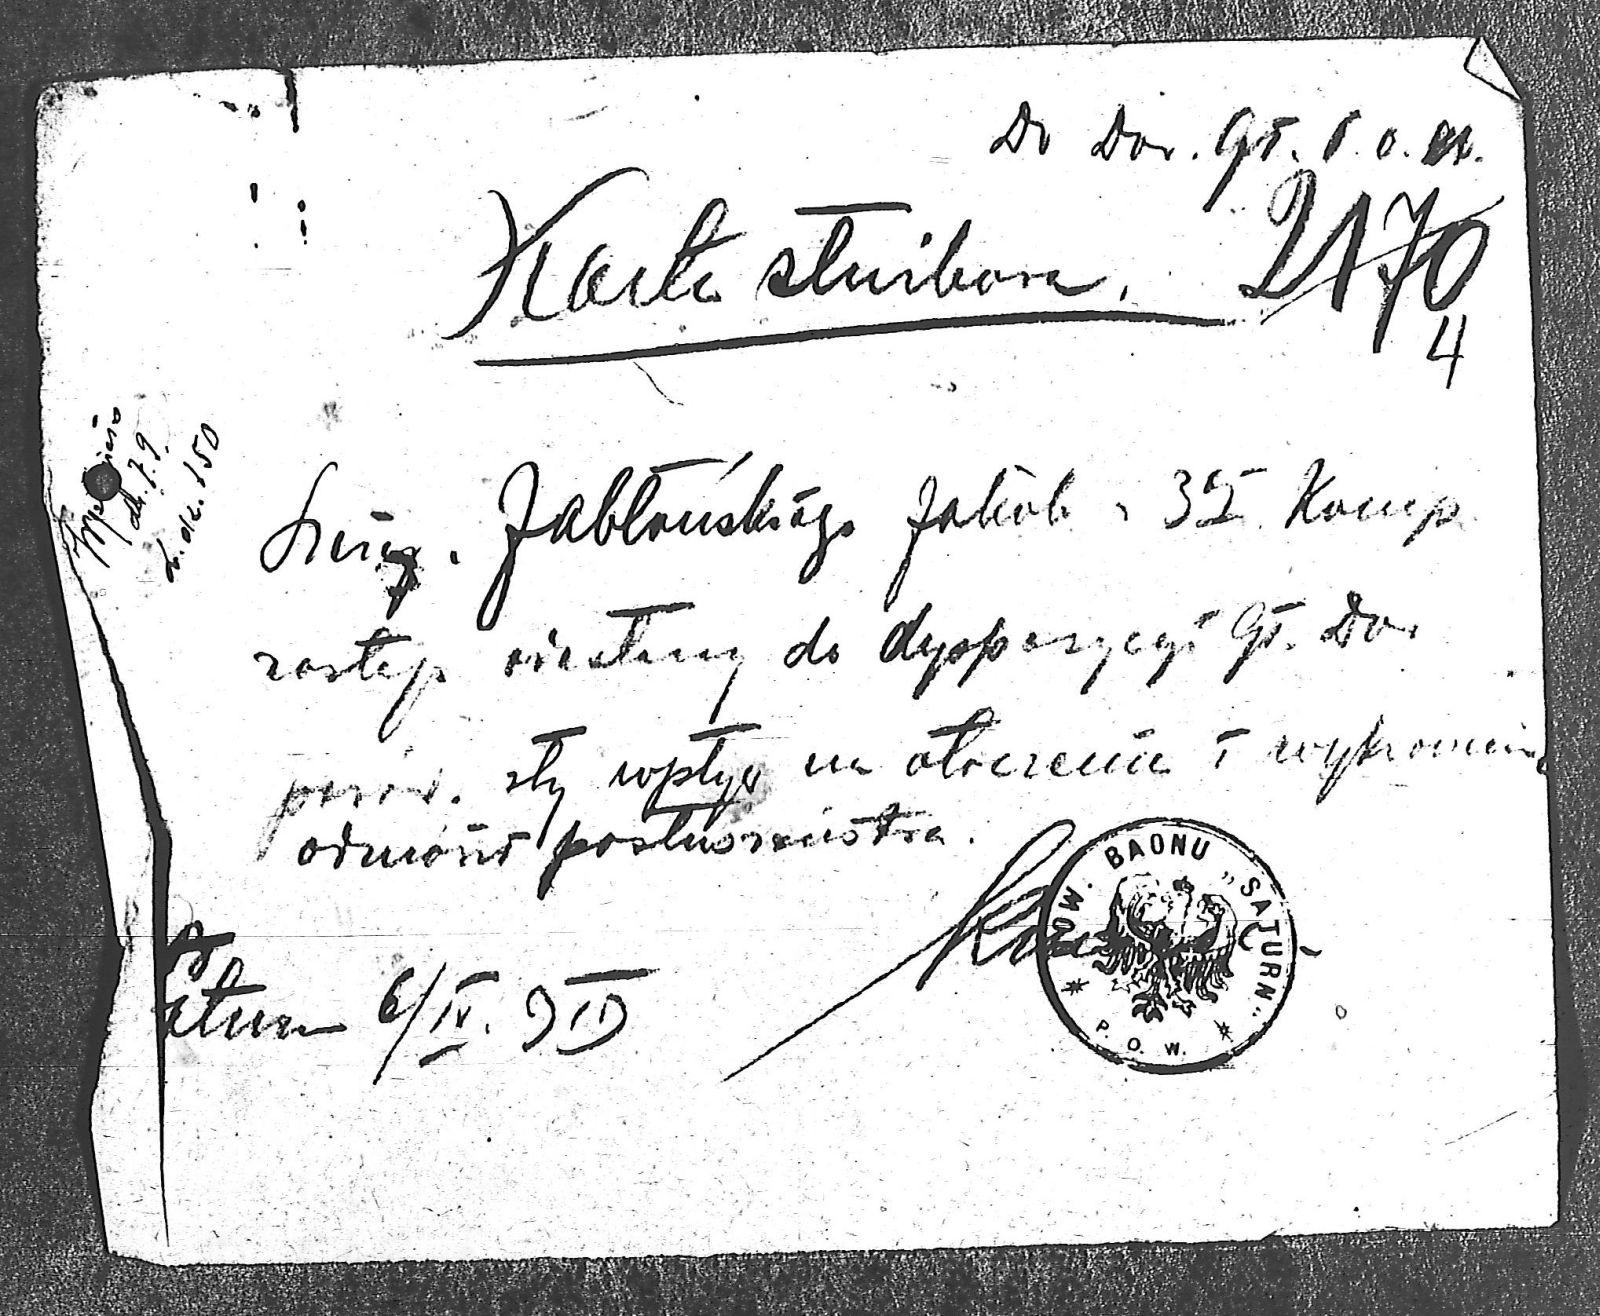 Do Dow. Gł. P.O.W.
Karta służbowa. 2170
4
dn. 7.9.
150
Szereg. Jabłońskiego Jakób z 3ej Komp
zostaje odesłany do dyspozycyi Gł. Dow
zły wpływ na otoczenie i
odmówił posłuszeństwa.
Saturn 6/IV. 919
DOW. BAONU „SATURN"
P. O. W.